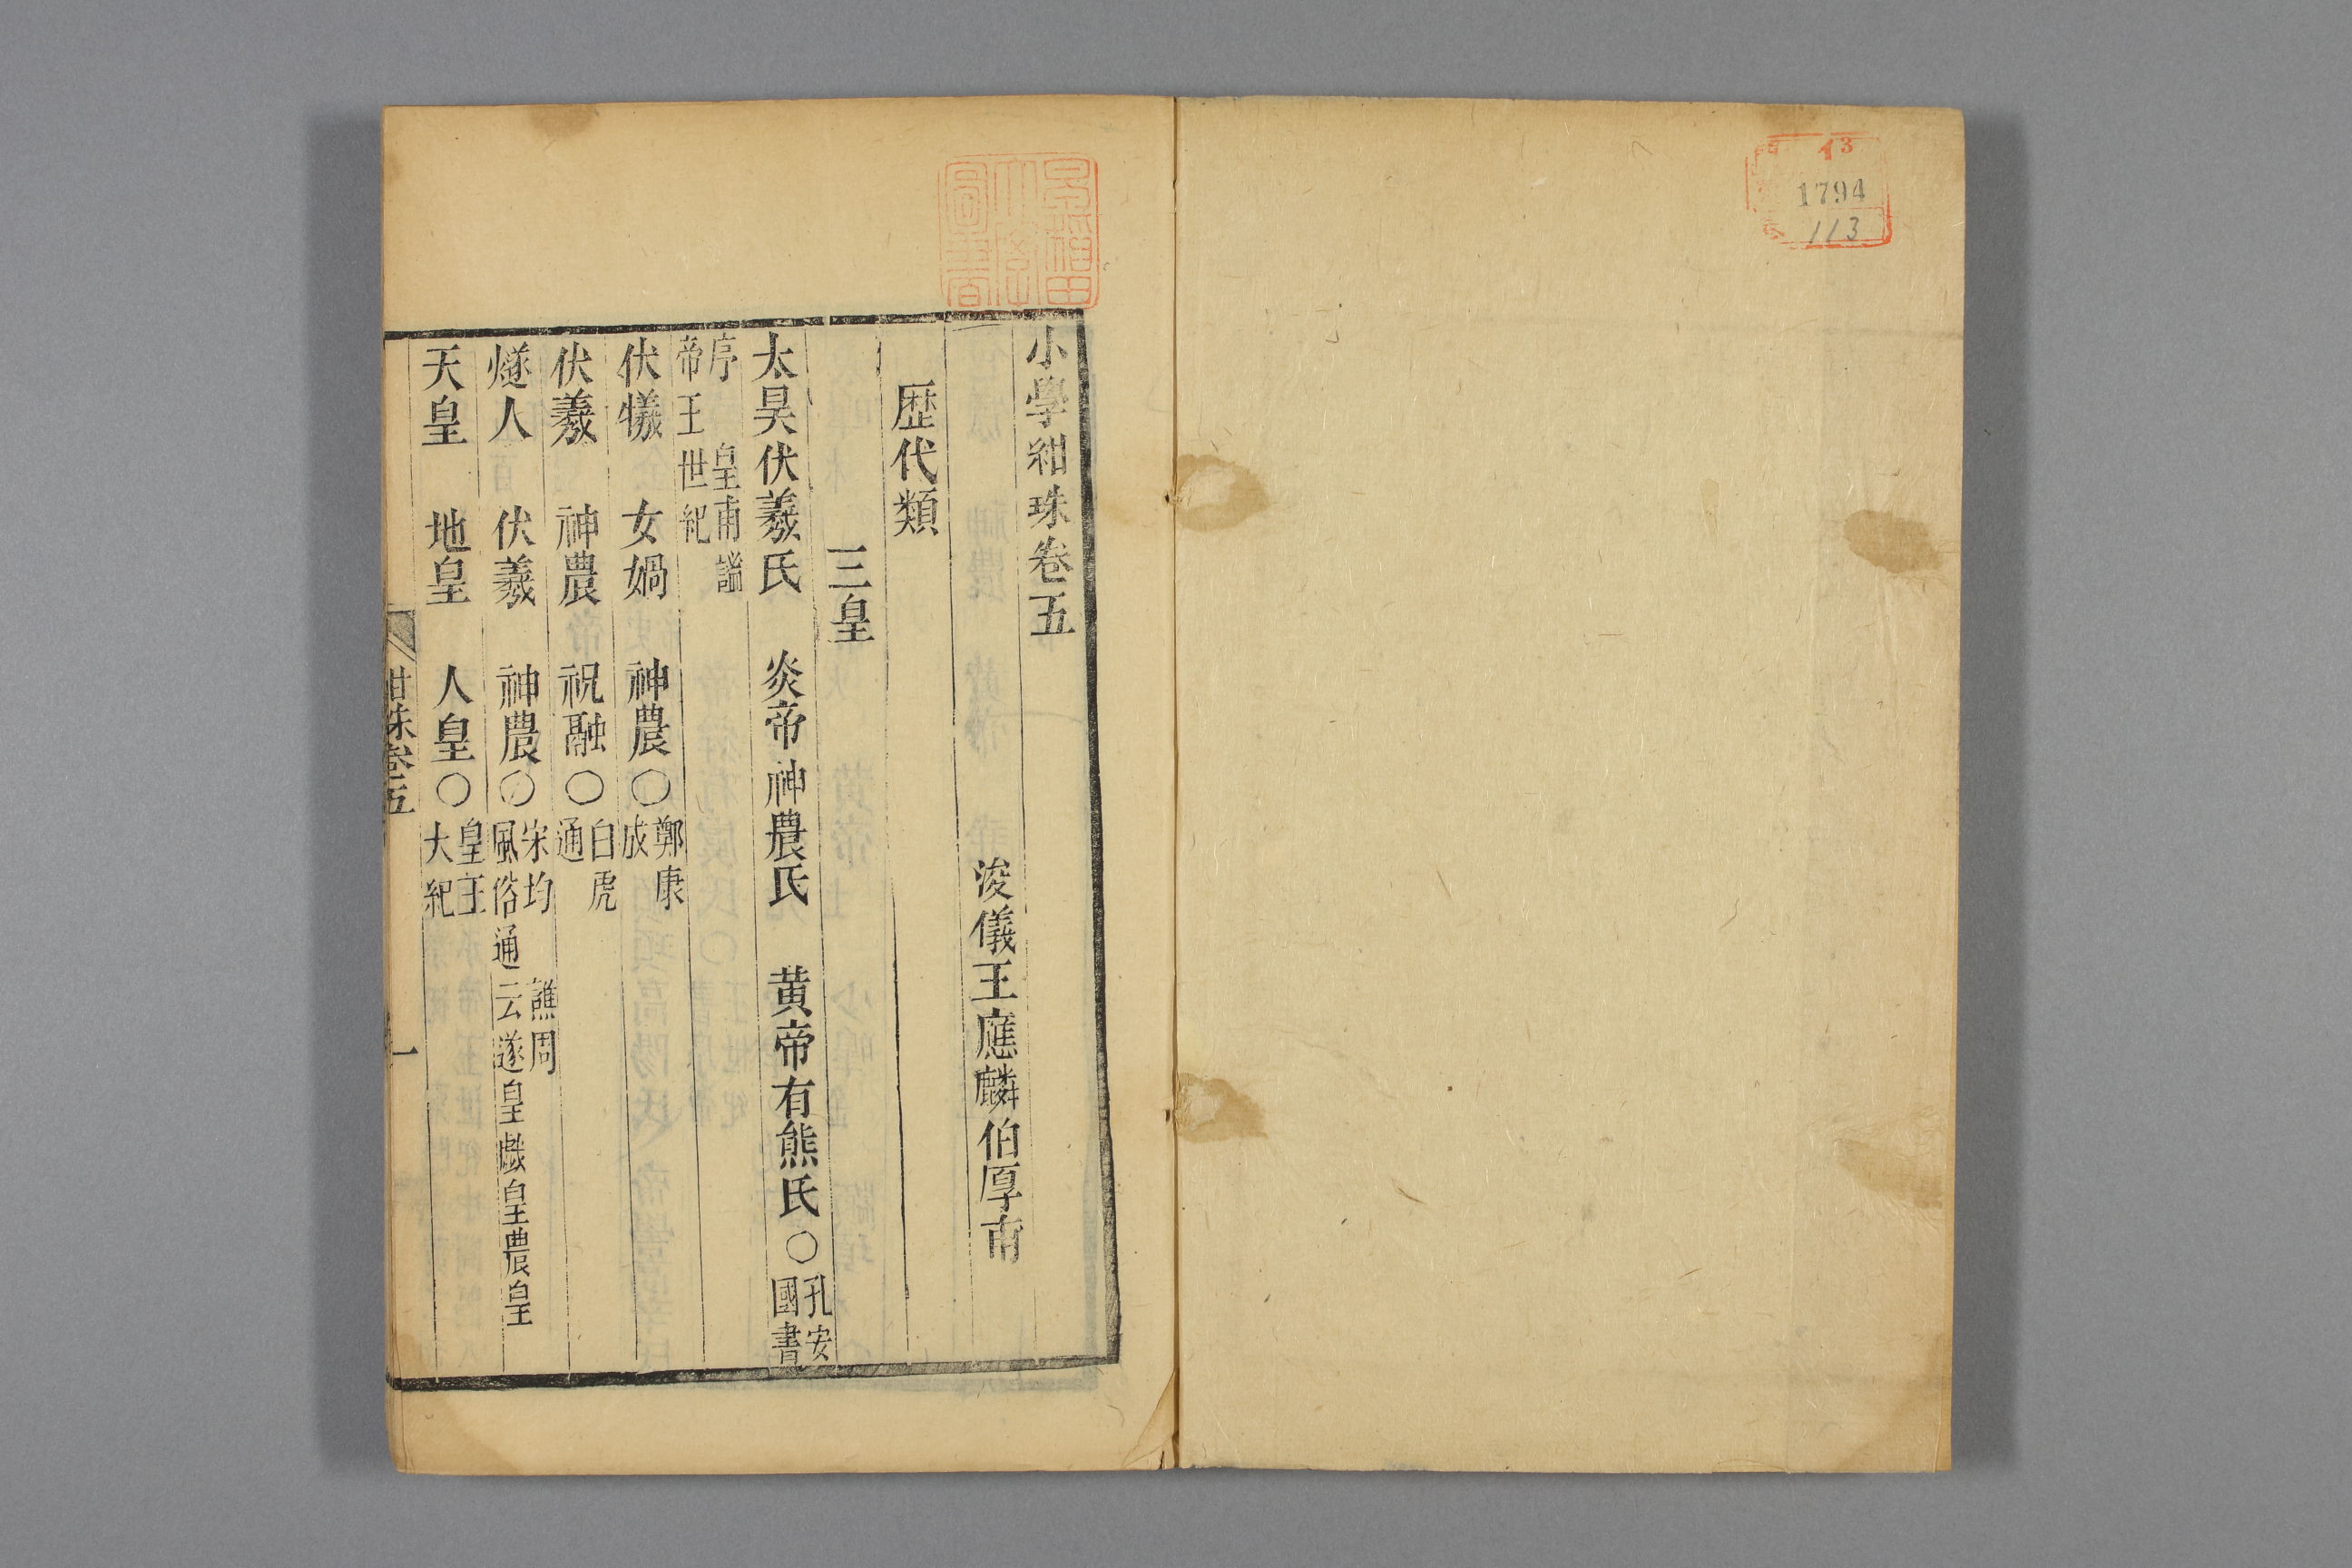 13
1794
113
早稲田大學圖書
小學紺珠卷五
浚儀王應麟伯厚甫
歷代類
三皇
太昊伏羲氏 炎帝神農氏 黄帝有熊氏○孔安國書
序 皇甫謐帝王世紀
伏犧 女媧 神農○鄭康成
伏羲 神農 祝融○白虎通
燧人 伏羲 神農○宋均 譙周風俗通云遂皇戲皇農皇
天皇 地皇 人皇○皇王大紀
紺珠卷五
一